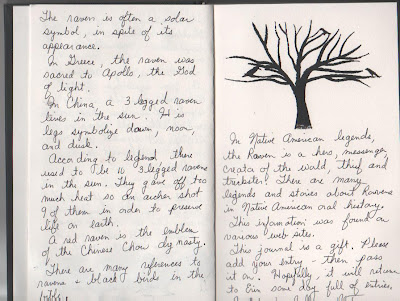 The raven is often a solar
symbol, in spite of its
appearance.
In Greece, the raven was
sacred to Apollo, the God
of light.
In China, a 3 legged raven
lives in the sun. It's
legs symbolize dawn, noon,
and dusk.
According to legend, there
used to be 10 3 legged ravens
in the sun. They gave off too
much heat so an archer shot
9 of them in order to preserve
life on earth.
A red raven is the emblem
of the Chinese Chow dynasty.
There are many references to
ravens + black birds in the
In Native American legends,
the Raven is a hero, messenger,
creator of the world, thief and
trickster! There are many
legends and stories about Ravens
in Native American oral history.
This information was found on
various web sites.
This journal is a gift. Please
add your entry - then pass
it on. Hopefully it will return
to Erin some day full of entries,